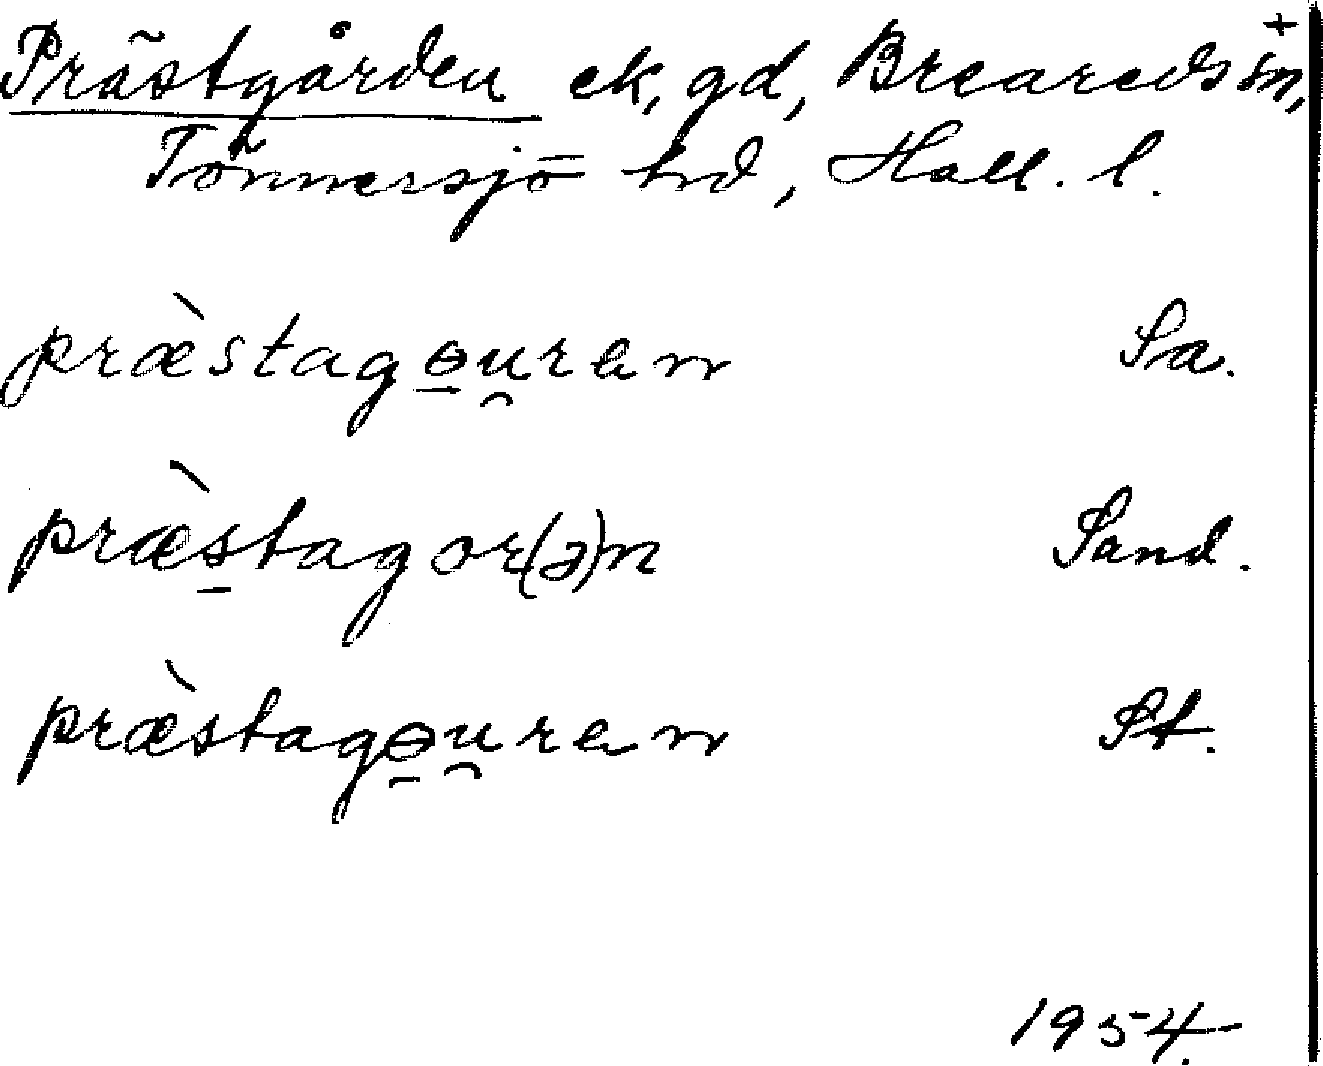 Prästgården ek, gd, Breareds sn, +
Tönnersjö hd, Hall. l.
præ̀stagɵu̯ren Sa.
præ̀stagor(ə)n Sand.
præ̀stagɵu̯ren St.
1954.